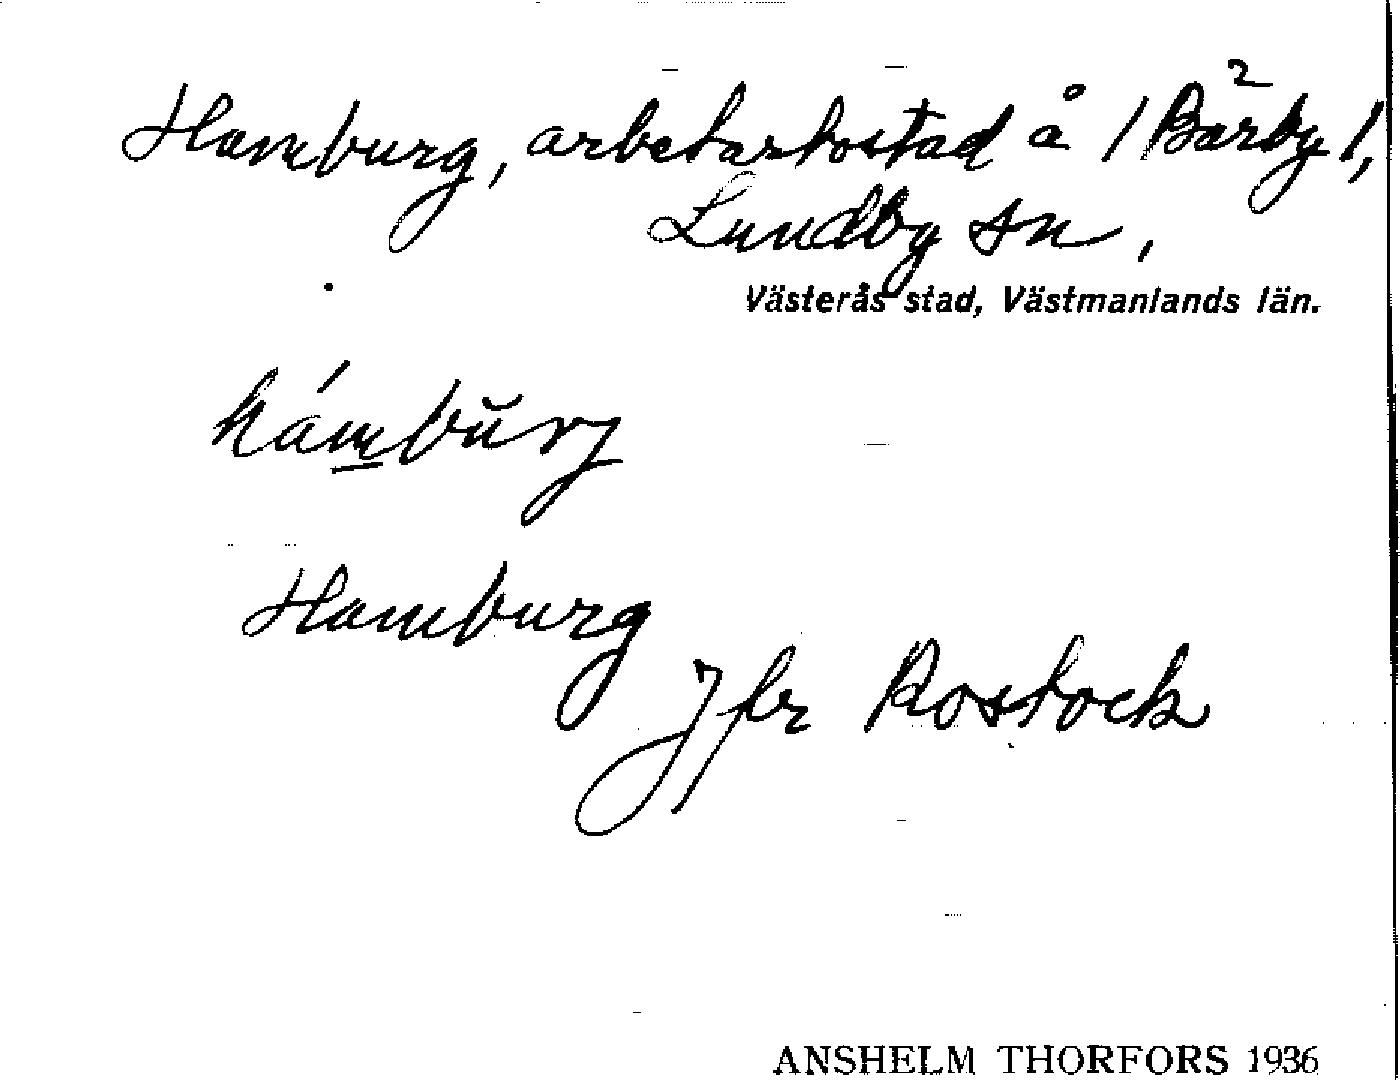 Hamburg, arbetarbostad å /Bärby/,
Lundby sn,
Västerås stad, Västmanlands län.
hámbŭrj
Hamburg
Jfr Rostock
ANSHELM THORFORS 1936